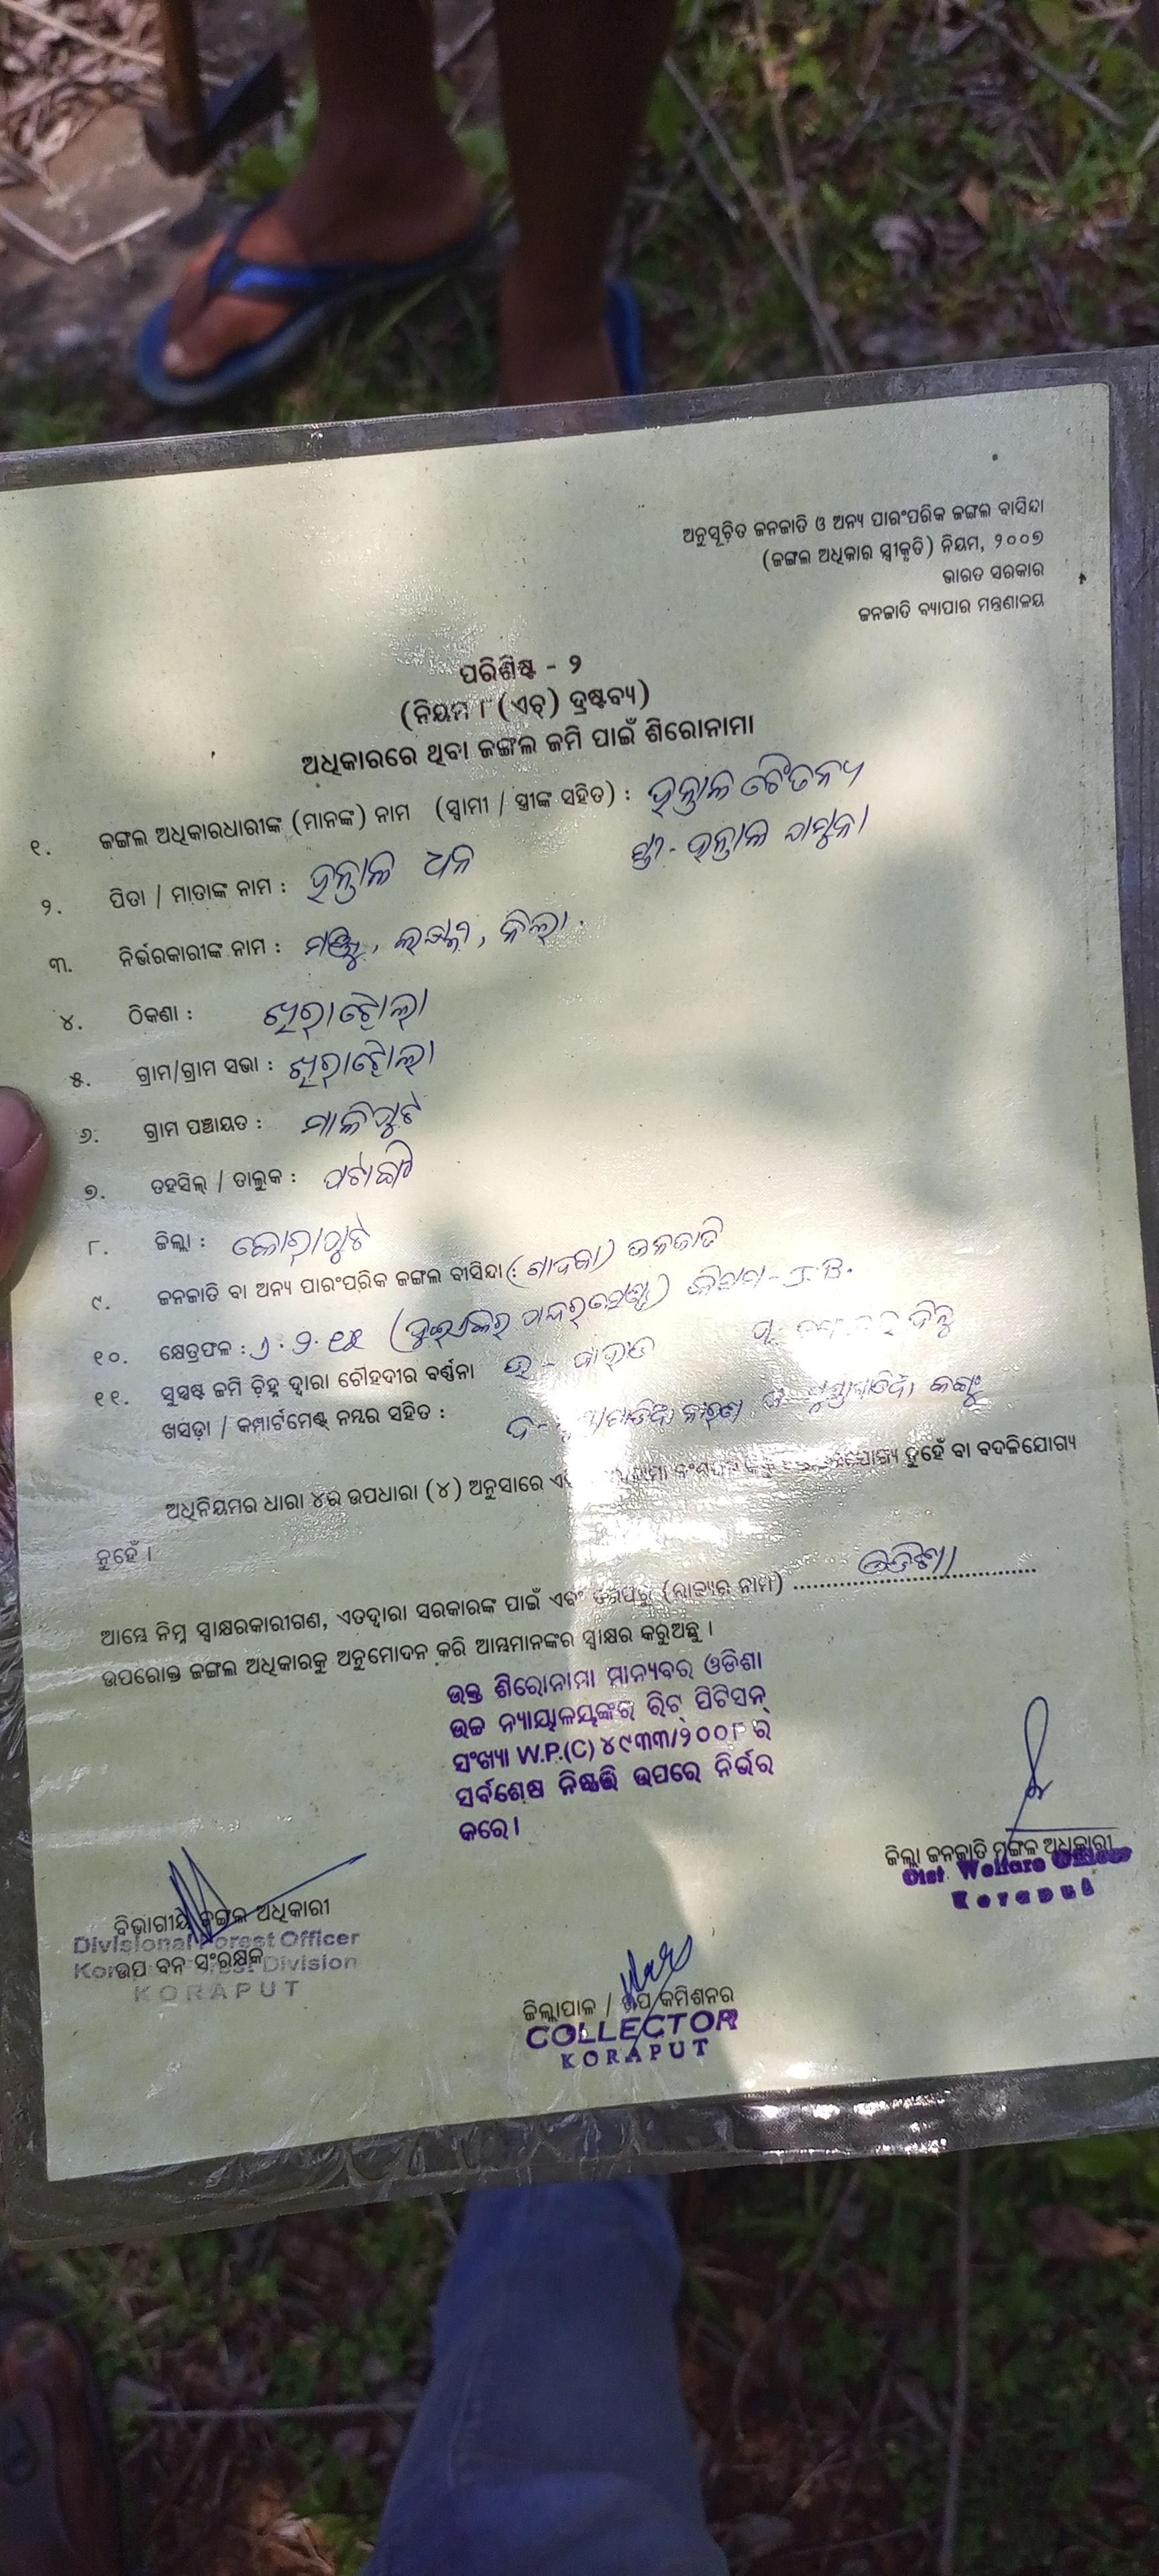 ଅନୁସୂଚିତ ଜନଜାତି ଓ ଅନ୍ୟ ପାରଂପରିକ ଜଙ୍ଗଲ ବାସିନ୍ଦା
(ଜଙ୍ଗଲ ଅଧିକାର ସ୍ୱୀକୃତି) ନିୟମ, ୨୦୦୭
ଭାରତ ସରକାର
ଜନଜାତି ବ୍ୟାପାର ମନ୍ତ୍ରଣାଳୟ
ପରିଶିଷ୍ଟ - ୨
(ନିୟମ ୮ (ଏଚ୍) ଦ୍ରଷ୍ଟବ୍ୟ)
ଅଧିକାରରେ ଥିବା ଜଙ୍ଗଲ ଜମି ପାଇଁ ଶିରୋନାମା
୧. ଜଙ୍ଗଲ ଅଧିକାରଧାରୀଙ୍କ (ମାନଙ୍କ) ନାମ (ସ୍ୱାମୀ / ସ୍ତ୍ରୀଙ୍କ ସହିତ) : ହନ୍ତାଳ ଚୈତନ୍ୟ
ସ୍ତ୍ରୀ - ହନ୍ତାଳ ଯମୁନା
୨. ପିତା / ମାତାଙ୍କ ନାମ : ହନ୍ତାଳ ଧନ
୩. ନିର୍ଭରକାରୀଙ୍କ ନାମ :
୪. ଠିକଣା : ଖରାଟୋଲା
୫. ଗ୍ରାମ/ଗ୍ରାମ ସଭା : ଖରାଟୋଲା
୬. ଗ୍ରାମ ପଞ୍ଚାୟତ : ମାଳିପୁଟ
୭. ତହସିଲ୍ / ତାଲୁକ : ପଟାଙ୍ଗୀ
୮. ଜିଲ୍ଲା : କୋରାପୁଟ
୯. ଜନଜାତି ବା ଅନ୍ୟ ପାରଂପରିକ ଜଙ୍ଗଲ ବାସିନ୍ଦା : (ଗାଦବା) ଜନଜାତି
୧୦. କ୍ଷେତ୍ରଫଳ :
୧୧. ସୁସ୍ପଷ୍ଟ ଜମି ଚିହ୍ନ ଦ୍ୱାରା ଚୌହଦୀର ବର୍ଣ୍ଣନା
ଖସଡ଼ା / କମ୍ପାର୍ଟମେଣ୍ଟ୍ ନମ୍ବର ସହିତ :
ଅଧିନିୟମର ଧାରା ୪ର ଉପଧାରା (୪) ଅନୁସାରେ ନୁହେଁ ବା ବଦଳିଯୋଗ୍ୟ
ନୁହେଁ ।
ଆମ୍ଭେ ନିମ୍ନ ସ୍ୱାକ୍ଷରକାରୀଗଣ, ଏତଦ୍ୱାରା ସରକାରଙ୍କ ପାଇଁ ଏବଂ ତରଫରୁ (ରାଜ୍ୟର ନାମ) ଓଡିଶା
ଉପରୋକ୍ତ ଜଙ୍ଗଲ ଅଧିକାରକୁ ଅନୁମୋଦନ କରି ଆମ୍ଭମାନଙ୍କର ସ୍ୱାକ୍ଷର କରୁଅଛୁ ।
ଉକ୍ତ ଶିରୋନାମା ମାନ୍ୟବର ଓଡିଶା
ଉଚ୍ଚ ନ୍ୟାୟାଳୟଙ୍କର ରିଟ୍ ପିଟିସନ୍
ସଂଖ୍ୟା W.P.(C) ୪୯୩୩/୨୦୦୮ ର
ସର୍ବଶେଷ ନିଷ୍ପତ୍ତି ଉପରେ ନିର୍ଭର
କରେ।
ଜିଲ୍ଲା ଜନଜାତି ମଙ୍ଗଳ ଅଧିକାରୀ
Dist Welfare Officer
Koraput
ବିଭାଗୀୟ ଜଙ୍ଗଲ ଅଧିକାରୀ
Divisional Forest Officer
ଉପ ବନ ସଂରକ୍ଷକ
Koraput Forest Division
KORAPUT
ଜିଲ୍ଲାପାଳ / ଉପ କମିଶନର
COLLECTOR
KORAPUT